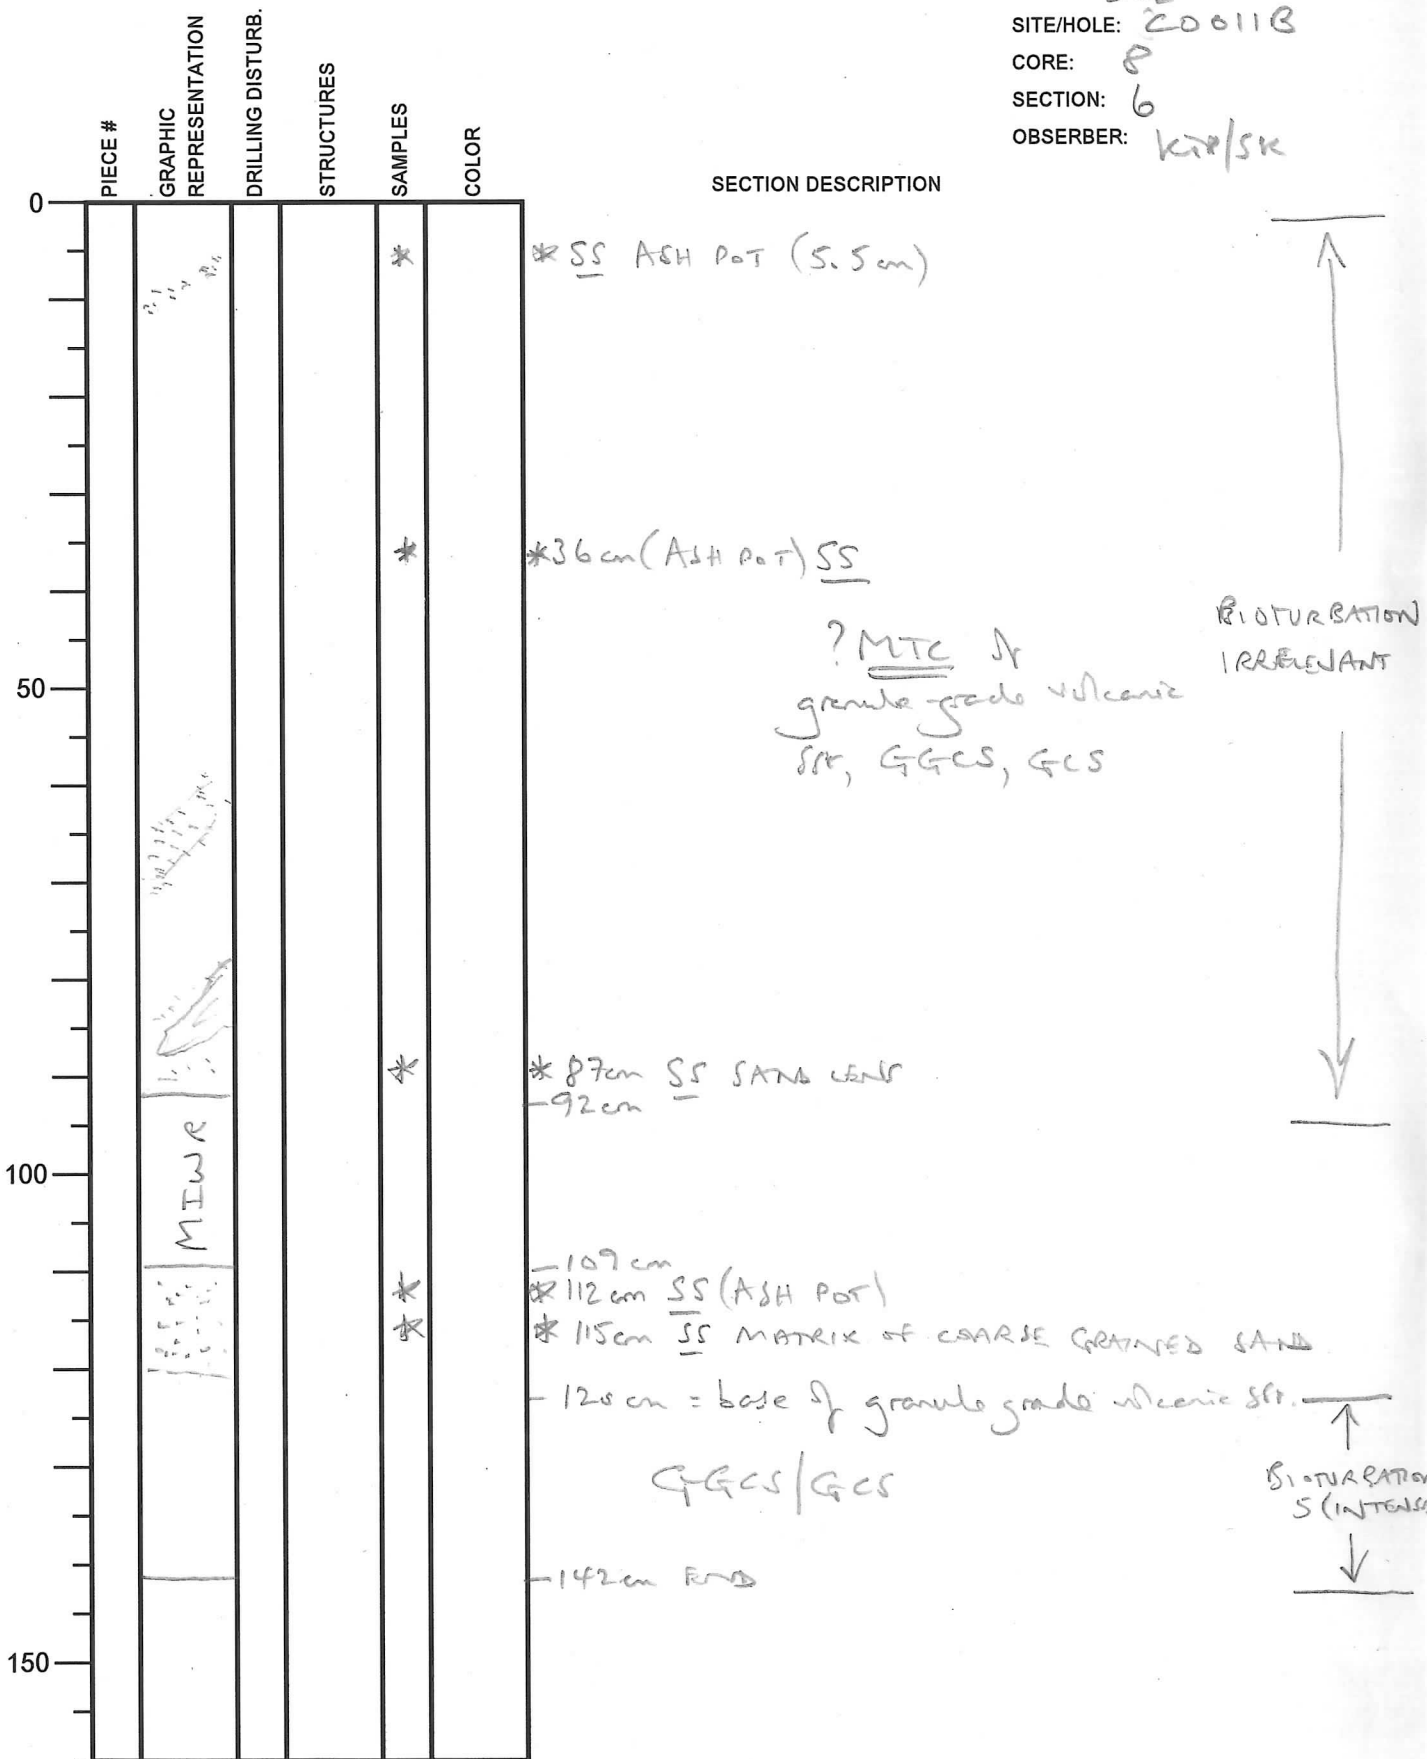 SITE/HOLE: C0011B
CORE: 8
SECTION: 6
OBSERBER: /SK
PIECE #
GRAPHIC
REPRESENTATION
DRILLING DISTURB.
STRUCTURES
SAMPLES
COLOR
SECTION DESCRIPTION
0
* * SS ASH POT (5.5 cm)
* *36 cm (ASH POT) SS
BIOTURBATION
IRRELEVANT
? MTC of
granule-grade volcanic
sst, GGCS, GCS
50
* * 87cm SS SAND LENS
-92cm
MIWR
100
-109 cm
* * 112 cm SS (ASH POT)
* * 115cm SS MATRIX OF COARSE GRAINED SAND
-120 cm = base of granule grade volcanic sst.
GGCS/GCS
BIOTURBATION
5 (INTENSE
-142cm END
150